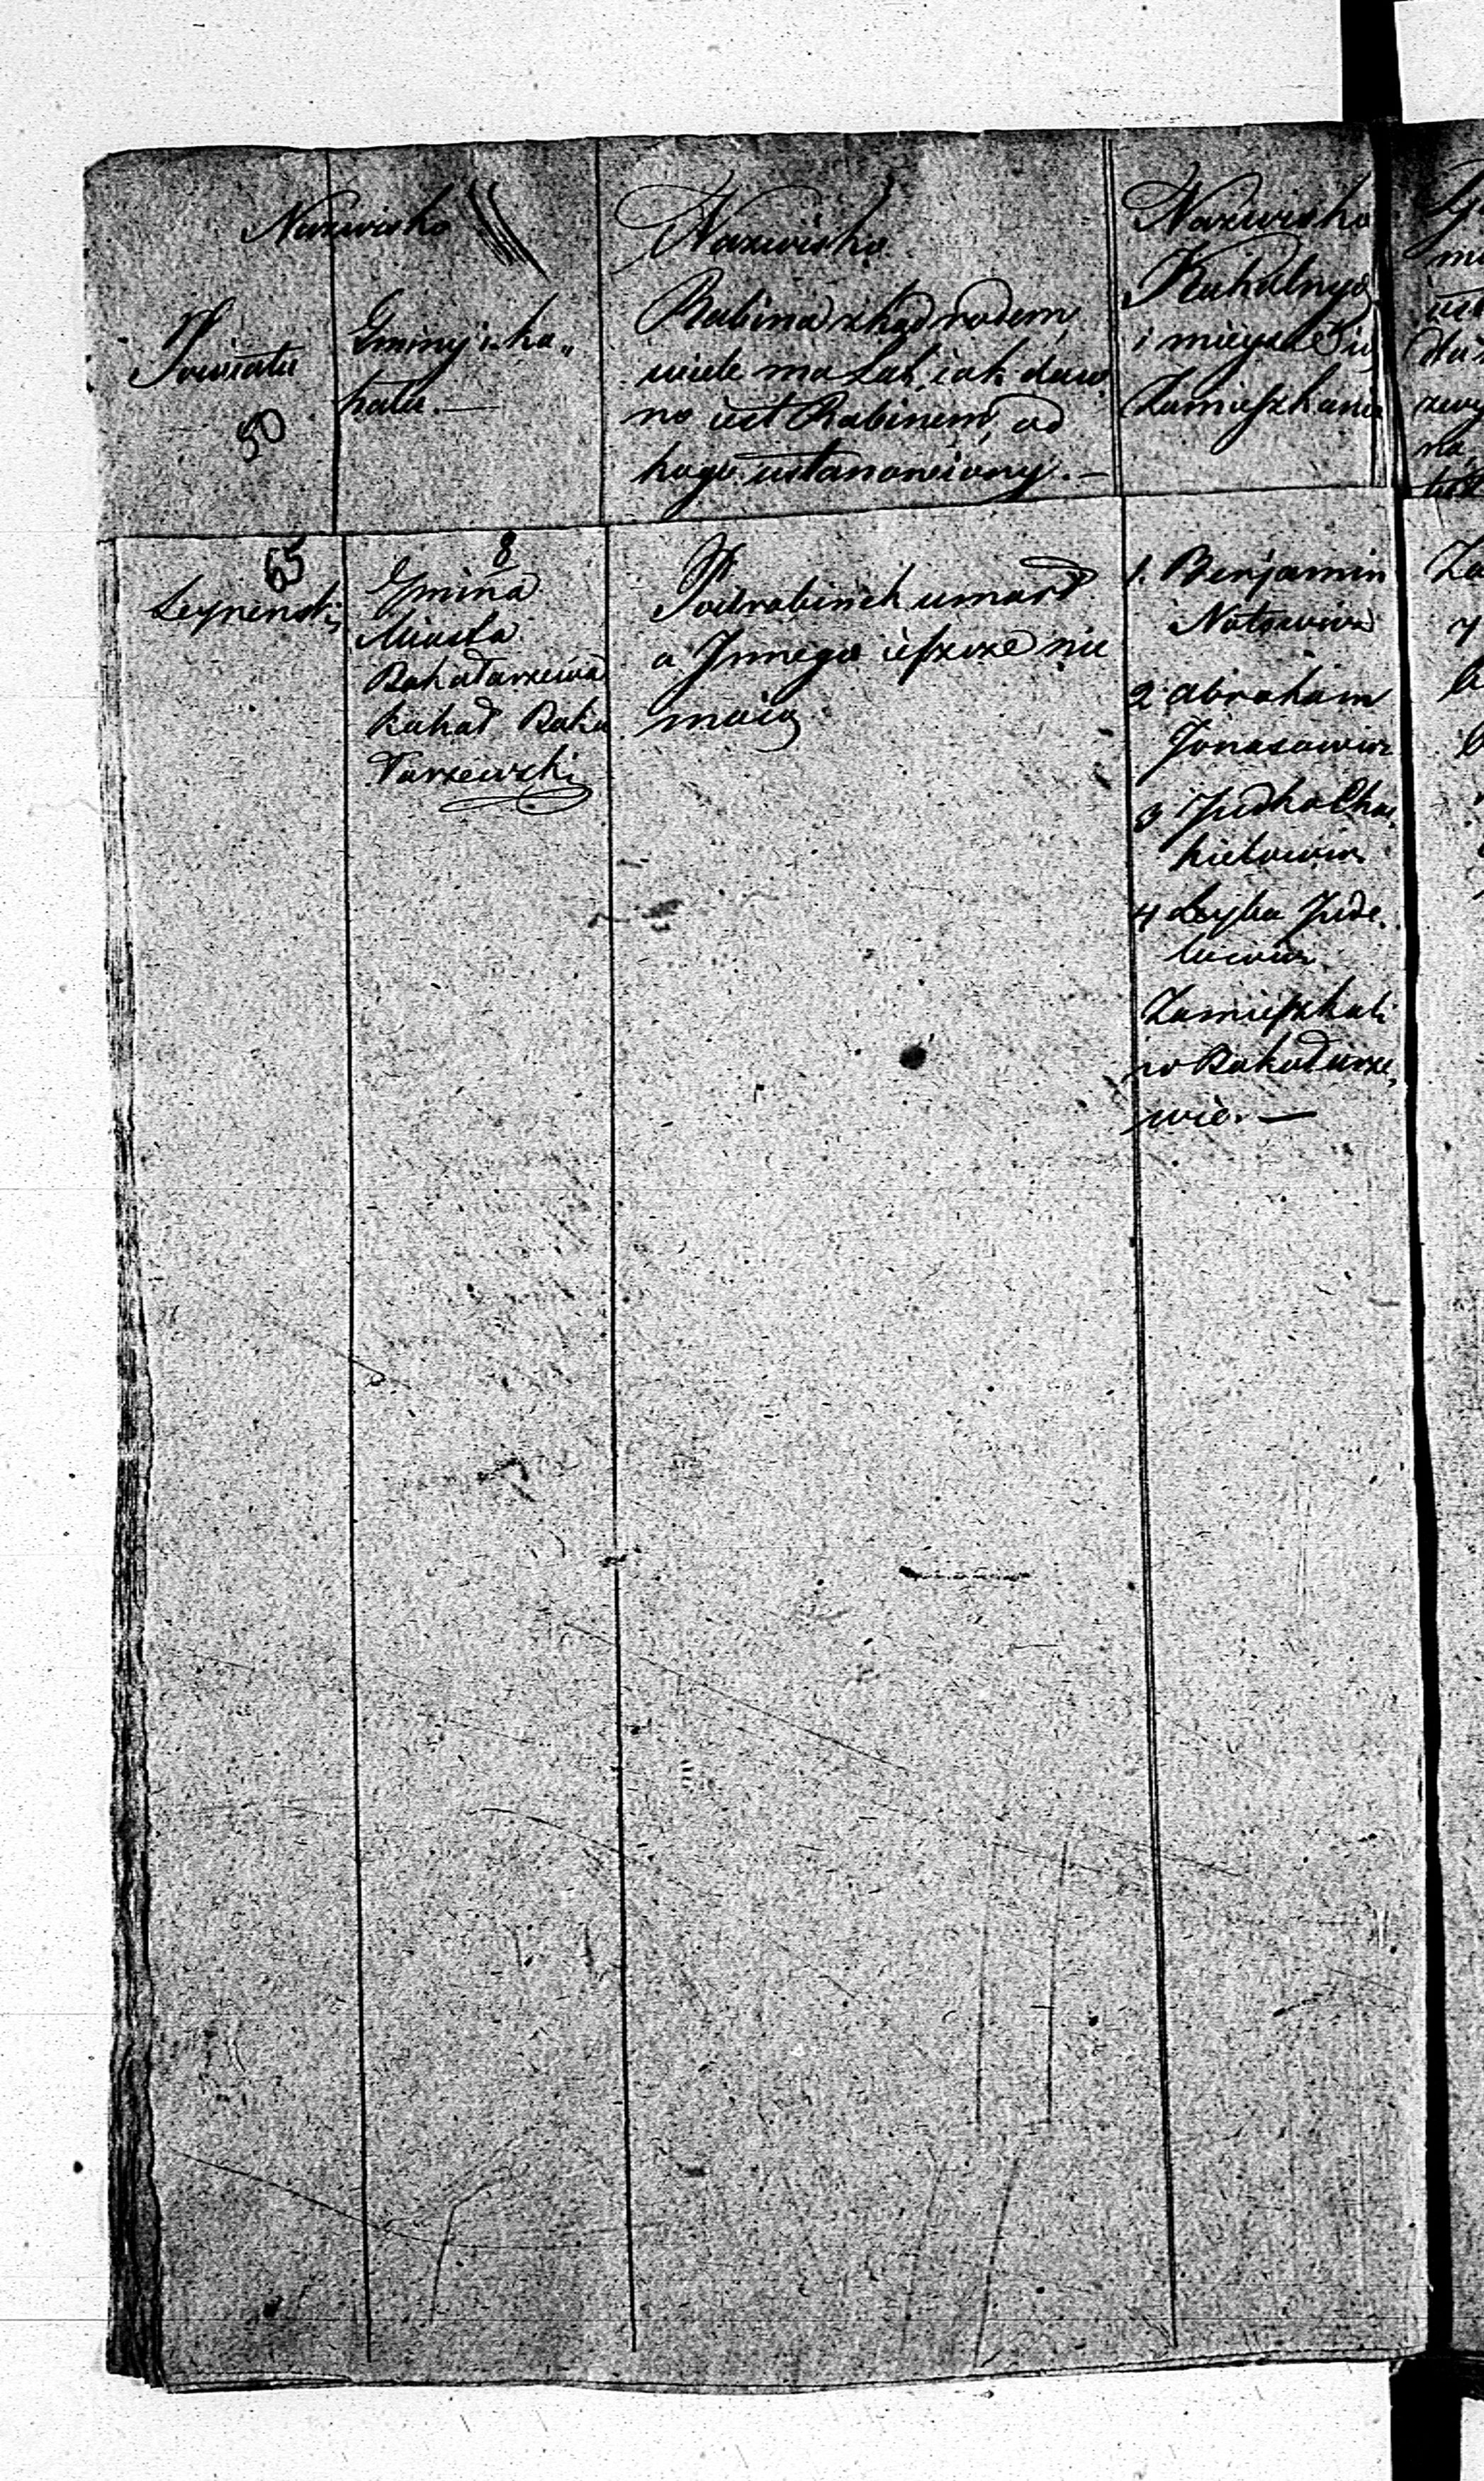 Nazwisko
Powiatu
50
Gminy i ka„
hału. —
Nazwisko
Rabina zkąd rodem,
wiele ma Lat, iak daw
no iest Rabinem, od
kogo ustanowiony. —
Nazwisko
Kahalnych
i mieysce Jch
Zamieszkania
65
Seynenski
8
Gmina
Miasta
Bakałarzewa
Kahał Baka
łarzewski
Podrabinek umarł
a Jnnego ieszcze nie
maią
1. Benjamin
Notowicz
2 Abraham
Jonasowicz
3 Judka Cha„
kielowicz
4 Leyba Jude„
lowicz
Zamieszkali
w Bakałarze„
wie. —